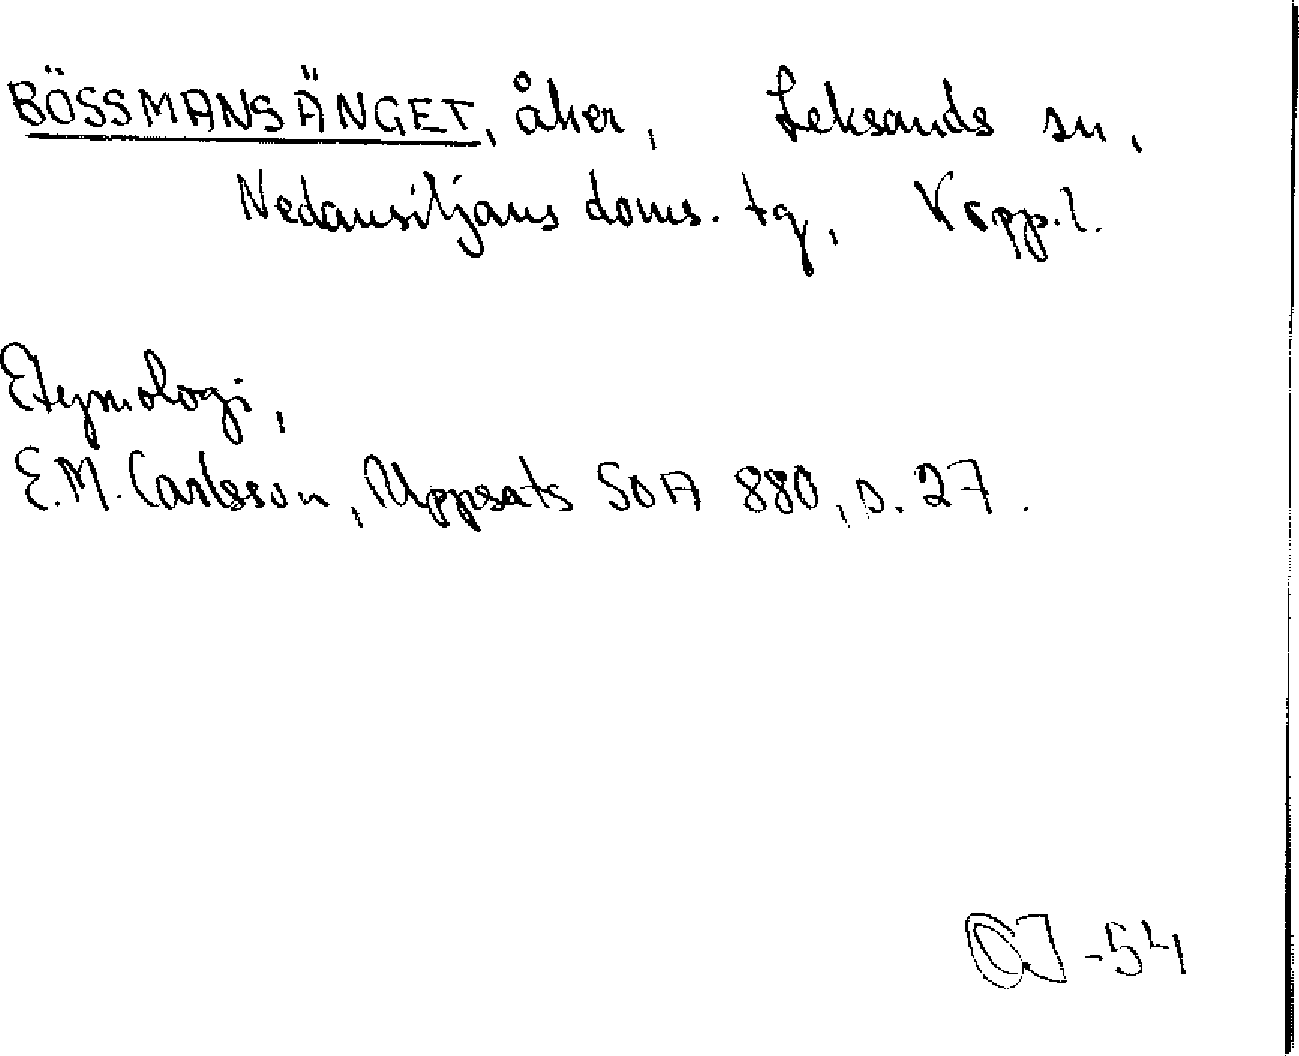 BÖSSMANSÄNGET, åker, Leksands sn,
Nedansiljans doms. tg, Kopp.l.
Etymologi,
E.M. Carlsson, Uppsats SOA 880, s. 27.
-54